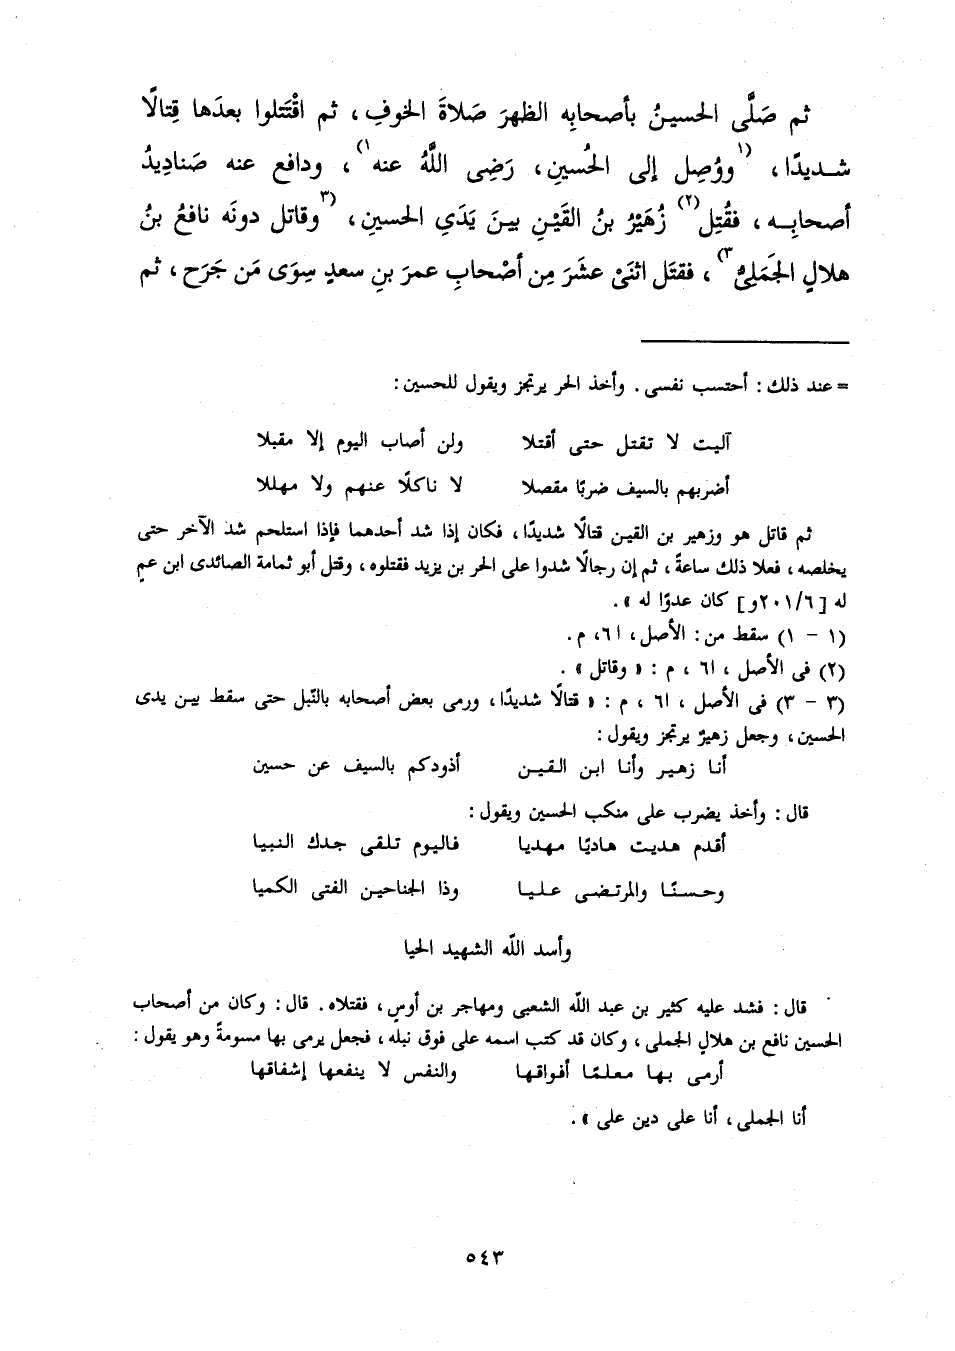 ثم صَلَّى الحسينُ بأصحابِه الظهرَ صَلاةَ الخوفِ، ثم اقْتَتَلوا بعدَها قِتالًا
شديدًا، (١ووُصِل إلى الحُسينِ، رَضِى اللَّهُ عنه١)، ودافع عنه صَناديدُ
أصحابِه، فقُتِل(٢) زُهَيْرُ بنُ القَيْنِ بينَ يَدَىِ الحسينِ، (٣وقاتل دونَه نافعُ بنُ
هلالٍ الجَمَلِىُّ٣)، فقتَل اثنَىْ عشَرَ مِن أصْحابِ عمرَ بنِ سعدٍ سِوَى مَن جَرَح، ثم
= عند ذلك: أحتسب نفسى. وأخذ الحر يرتجز ويقول للحسين:
آليت لا تقتل حتى أقتلا ولن أصاب اليوم إلا مقبلا
أضربهم بالسيف ضربًا مقصلا لا ناكلًا عنهم ولا مهللا
ثم قاتل هو وزهير بن القين قتالًا شديدًا، فكان إذا شد أحدهما فإذا استلحم شد الآخر حتى
يخلصه، فعلا ذلك ساعةً، ثم إن رجالًا شدوا على الحر بن يزيد فقتلوه، وقتل أبو ثمامة الصائدى ابن عمٍ
له [٢٠١/٦و] كان عدوًا له».
(١ - ١) سقط من: الأصل، ا٦، م.
(٢) فى الأصل، ا٦، م: «وقاتل».
(٣ - ٣) فى الأصل، ا٦، م: «قتالًا شديدًا، ورمى بعض أصحابه بالنّبل حتى سقط بين يدى
الحسين، وجعل زهيرٌ يرتجز ويقول:
أنا زهير وأنا ابن القين أذودكم بالسيف عن حسين
قال: وأخذ يضرب على منكب الحسين ويقول:
أقدم هديت هاديًا مهديا فاليوم تلقى جدك النبيا
وحسنًا والمرتضى عليا وذا الجناحين الفتى الكميا
وأسد اللّه الشهيد الحيا
قال: فشد عليه كثير بن عبد اللّه الشعبى ومهاجر بن أوس، فقتلاه. قال: وكان من أصحاب
الحسين نافع بن هلالٍ الجملى، وكان قد كتب اسمه على فوق نبله، فجعل يرمى بها مسومةً وهو يقول:
أرمى بها معلمًا أفواقها والنفس لا ينفعها إشفاقها
أنا الجملى، أنا على دين على».
٥٤٣